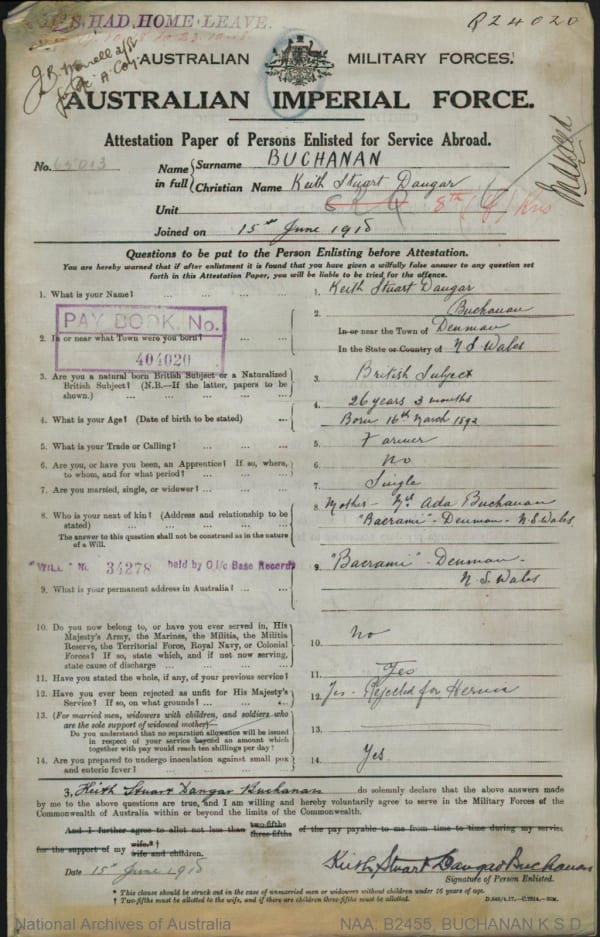 HAD HOME LEAVE.
R24020
AUSTRALIAN MILITARY FORCES.
AUSTRALIAN IMPERIAL FORCE.
Attestation Paper of Persons Enlisted for Service Abroad.
No. 65013
Name in full
Surname BUCHANAN
Christian Name Keith Stuart Dangar
Unit
Joined on 15th June 1918
Questions to be put to the Person Enlisting before Attestation.
You are hereby warned that if after enlistment it is found that you have given a wilfully false answer to any question set
forth in this Attestation Paper, you will be liable to be tried for the offence.
1. What is your Name? ... ... ...
1. Keith Stuart Dangar
Buchanan
PAY BOOK. No.
404020
2. In or near what Town were you born?
2. In or near the Town of Denman
In the State or Country of N.S. Wales
3. Are you a natural born British Subject or a Naturalized
British Subject? (N.B.—If the latter, papers to be
shown.) ... ... ... ...
3. British Subject
4. What is your Age? (Date of birth to be stated) ...
4. 26 years 3 months
Born 16th March 1892
5. What is your Trade or Calling? ... ... ...
5. Farmer
6. Are you, or have you been, an Apprentice? If so, where,
to whom, and for what period? ... ... ...
6. No
7. Are you married, single, or widower? ... ... ...
7. Single
8. Who is your next of kin? (Address and relationship to be
stated) ... ... ... ...
The answer to this question shall not be construed as in the nature
of a Will.
8. Mother - Mrs Ada Buchanan
"Baerami" - Denman - N.S. Wales
"WILL" No. 34278 held by O i/c Base Records
9. What is your permanent address in Australia? ... ...
9. "Baerami" - Denman -
N.S. Wales
10. Do you now belong to, or have you ever served in, His
Majesty's Army, the Marines, the Militia, the Militia
Reserve, the Territorial Force, Royal Navy, or Colonial
Forces? If so, state which, and if not now serving,
state cause of discharge ... ... ...
10. No
11. Have you stated the whole, if any, of your previous service?
11. Yes
12. Have you ever been rejected as unfit for His Majesty's
Service? If so, on what grounds? ... ... ...
12. Yes - Rejected for Hernia
13. (For married men, widowers with children, and soldiers who
are the sole support of widowed mother)—
Do you understand that no separation allowance will be issued
in respect of your service beyond an amount which
together with pay would reach ten shillings per day?
13.
14. Are you prepared to undergo inoculation against small pox
and enteric fever? ... ... ... ...
14. Yes
I, Keith Stuart Dangar Buchanan do solemnly declare that the above answers made
by me to the above questions are true, and I am willing and hereby voluntarily agree to serve in the Military Forces of the
Commonwealth of Australia within or beyond the limits of the Commonwealth.
And I further agree to allot not less than two-fifths three-fifths of the pay payable to me from time to time during my service
for the support of my wife.*† wife and children.
Date 15th June 1918
Keith Stuart Dangar Buchanan
Signature of Person Enlisted.
* This clause should be struck out in the case of unmarried men or widowers without children under 16 years of age.
† Two-fifths must be allotted to the wife, and if there are children three-fifths must be allotted.
National Archives of Australia
NAA: B2455, BUCHANAN K S D